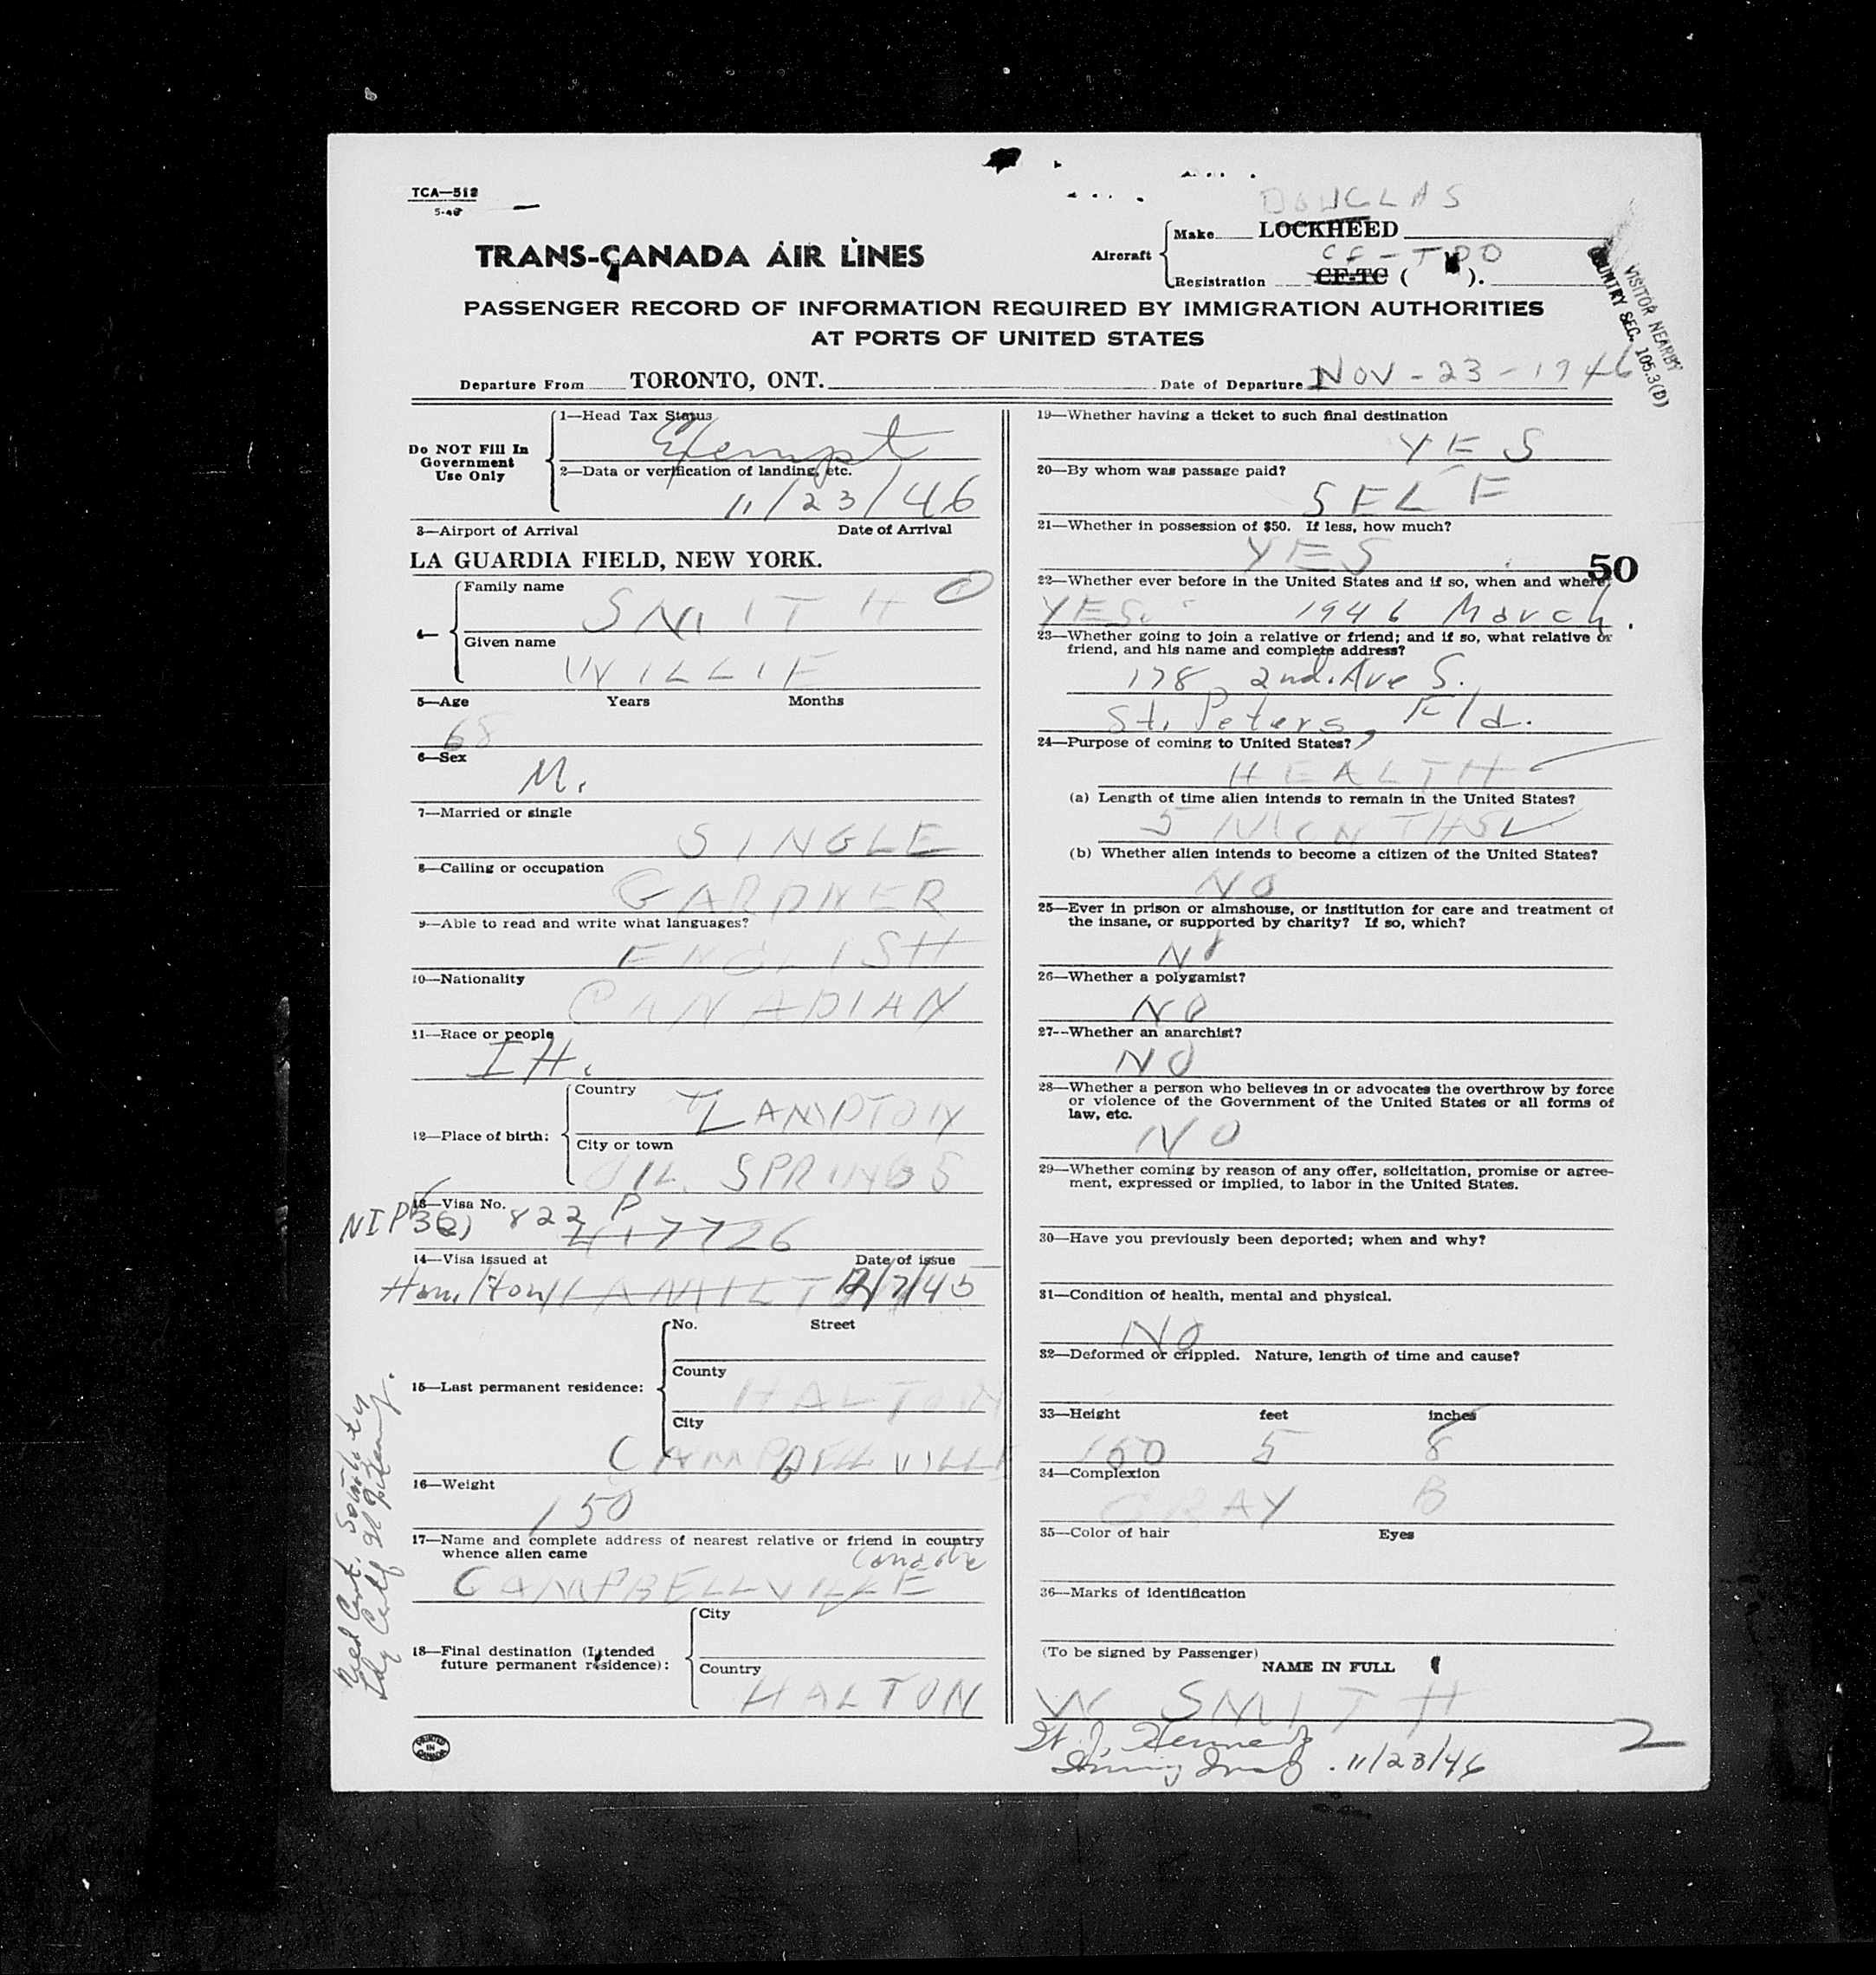 TCA—512
5-46
DOUGLAS
Aircraft
Make LOCKHEED
CF-TDO
Registration CF-TC ( ).
VISITOR NEARBY
COUNTRY SEC. 105.3(D)
TRANS-CANADA AIR LINES
PASSENGER RECORD OF INFORMATION REQUIRED BY IMMIGRATION AUTHORITIES
AT PORTS OF UNITED STATES
Departure From TORONTO, ONT. Date of Departure NOV-23-1946
Do NOT Fill In
Government
Use Only
1—Head Tax Status
Exempt
2—Data or verification of landing, etc.
11/23/46
3—Airport of Arrival Date of Arrival
LA GUARDIA FIELD, NEW YORK.
4—
Family name
SMITH
Given name
WILLIE
5—Age Years Months
68
6—Sex
M.
7—Married or single
SINGLE
8—Calling or occupation
GARDNER
9—Able to read and write what languages?
ENGLISH
10—Nationality
CANADIAN
11—Race or people
IH.
12—Place of birth:
Country
LAMPTON
City or town
OIL SPRINGS
13—Visa No.
NIP 822 P
417726
14—Visa issued at Date of issue
Hamilton HAMILTON 12/7/45
15—Last permanent residence:
No. Street
County
HALTON
City
CAMPBELLVILLE
16—Weight
150
17—Name and complete address of nearest relative or friend in country
whence alien came
Canada
CAMPBELLVILLE
18—Final destination (Intended
future permanent residence):
City
Country
HALTON
PRINTED
IN
CANADA
19—Whether having a ticket to such final destination
YES
20—By whom was passage paid?
SELF
21—Whether in possession of $50. If less, how much?
YES
50
22—Whether ever before in the United States and if so, when and where?
YES. 1946 March.
23—Whether going to join a relative or friend; and if so, what relative or
friend, and his name and complete address?
178 2nd. Ave S.
St. Peters, Fld.
24—Purpose of coming to United States?
HEALTH
(a) Length of time alien intends to remain in the United States?
5 MONTHS
(b) Whether alien intends to become a citizen of the United States?
NO
25—Ever in prison or almshouse, or institution for care and treatment of
the insane, or supported by charity? If so, which?
NO
26—Whether a polygamist?
NO
27--Whether an anarchist?
NO
28—Whether a person who believes in or advocates the overthrow by force
or violence of the Government of the United States or all forms of
law, etc.
NO
29—Whether coming by reason of any offer, solicitation, promise or agree-
ment, expressed or implied, to labor in the United States.
30—Have you previously been deported; when and why?
31—Condition of health, mental and physical.
NO
32—Deformed or crippled. Nature, length of time and cause?
33—Height feet inches
150 5 8
34—Complexion
GRAY B
35—Color of hair Eyes
36—Marks of identification
(To be signed by Passenger)
NAME IN FULL
W SMITH
Kennedy
11/23/46
2